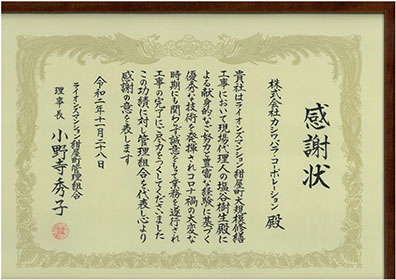 感謝状
株式会社カシワバラ・コーポレーション 殿
貴社はライオンズマンション紺屋町大規模修繕
工事において現場代理人の塩谷樹生殿に
よる献身的なご努力で豊富な経験に基づく
優秀な技術を発揮されコロナ禍の大変な
時期にも関わらず誠意をもって業務を遂行され
工事の完了にご尽力をつくしてくださいました
この功績に対し管理組合を代表し心より
感謝の意を表します
令和二年十一月二十八日
ライオンズマンション紺屋町管理組合
理事長 小野寺秀子